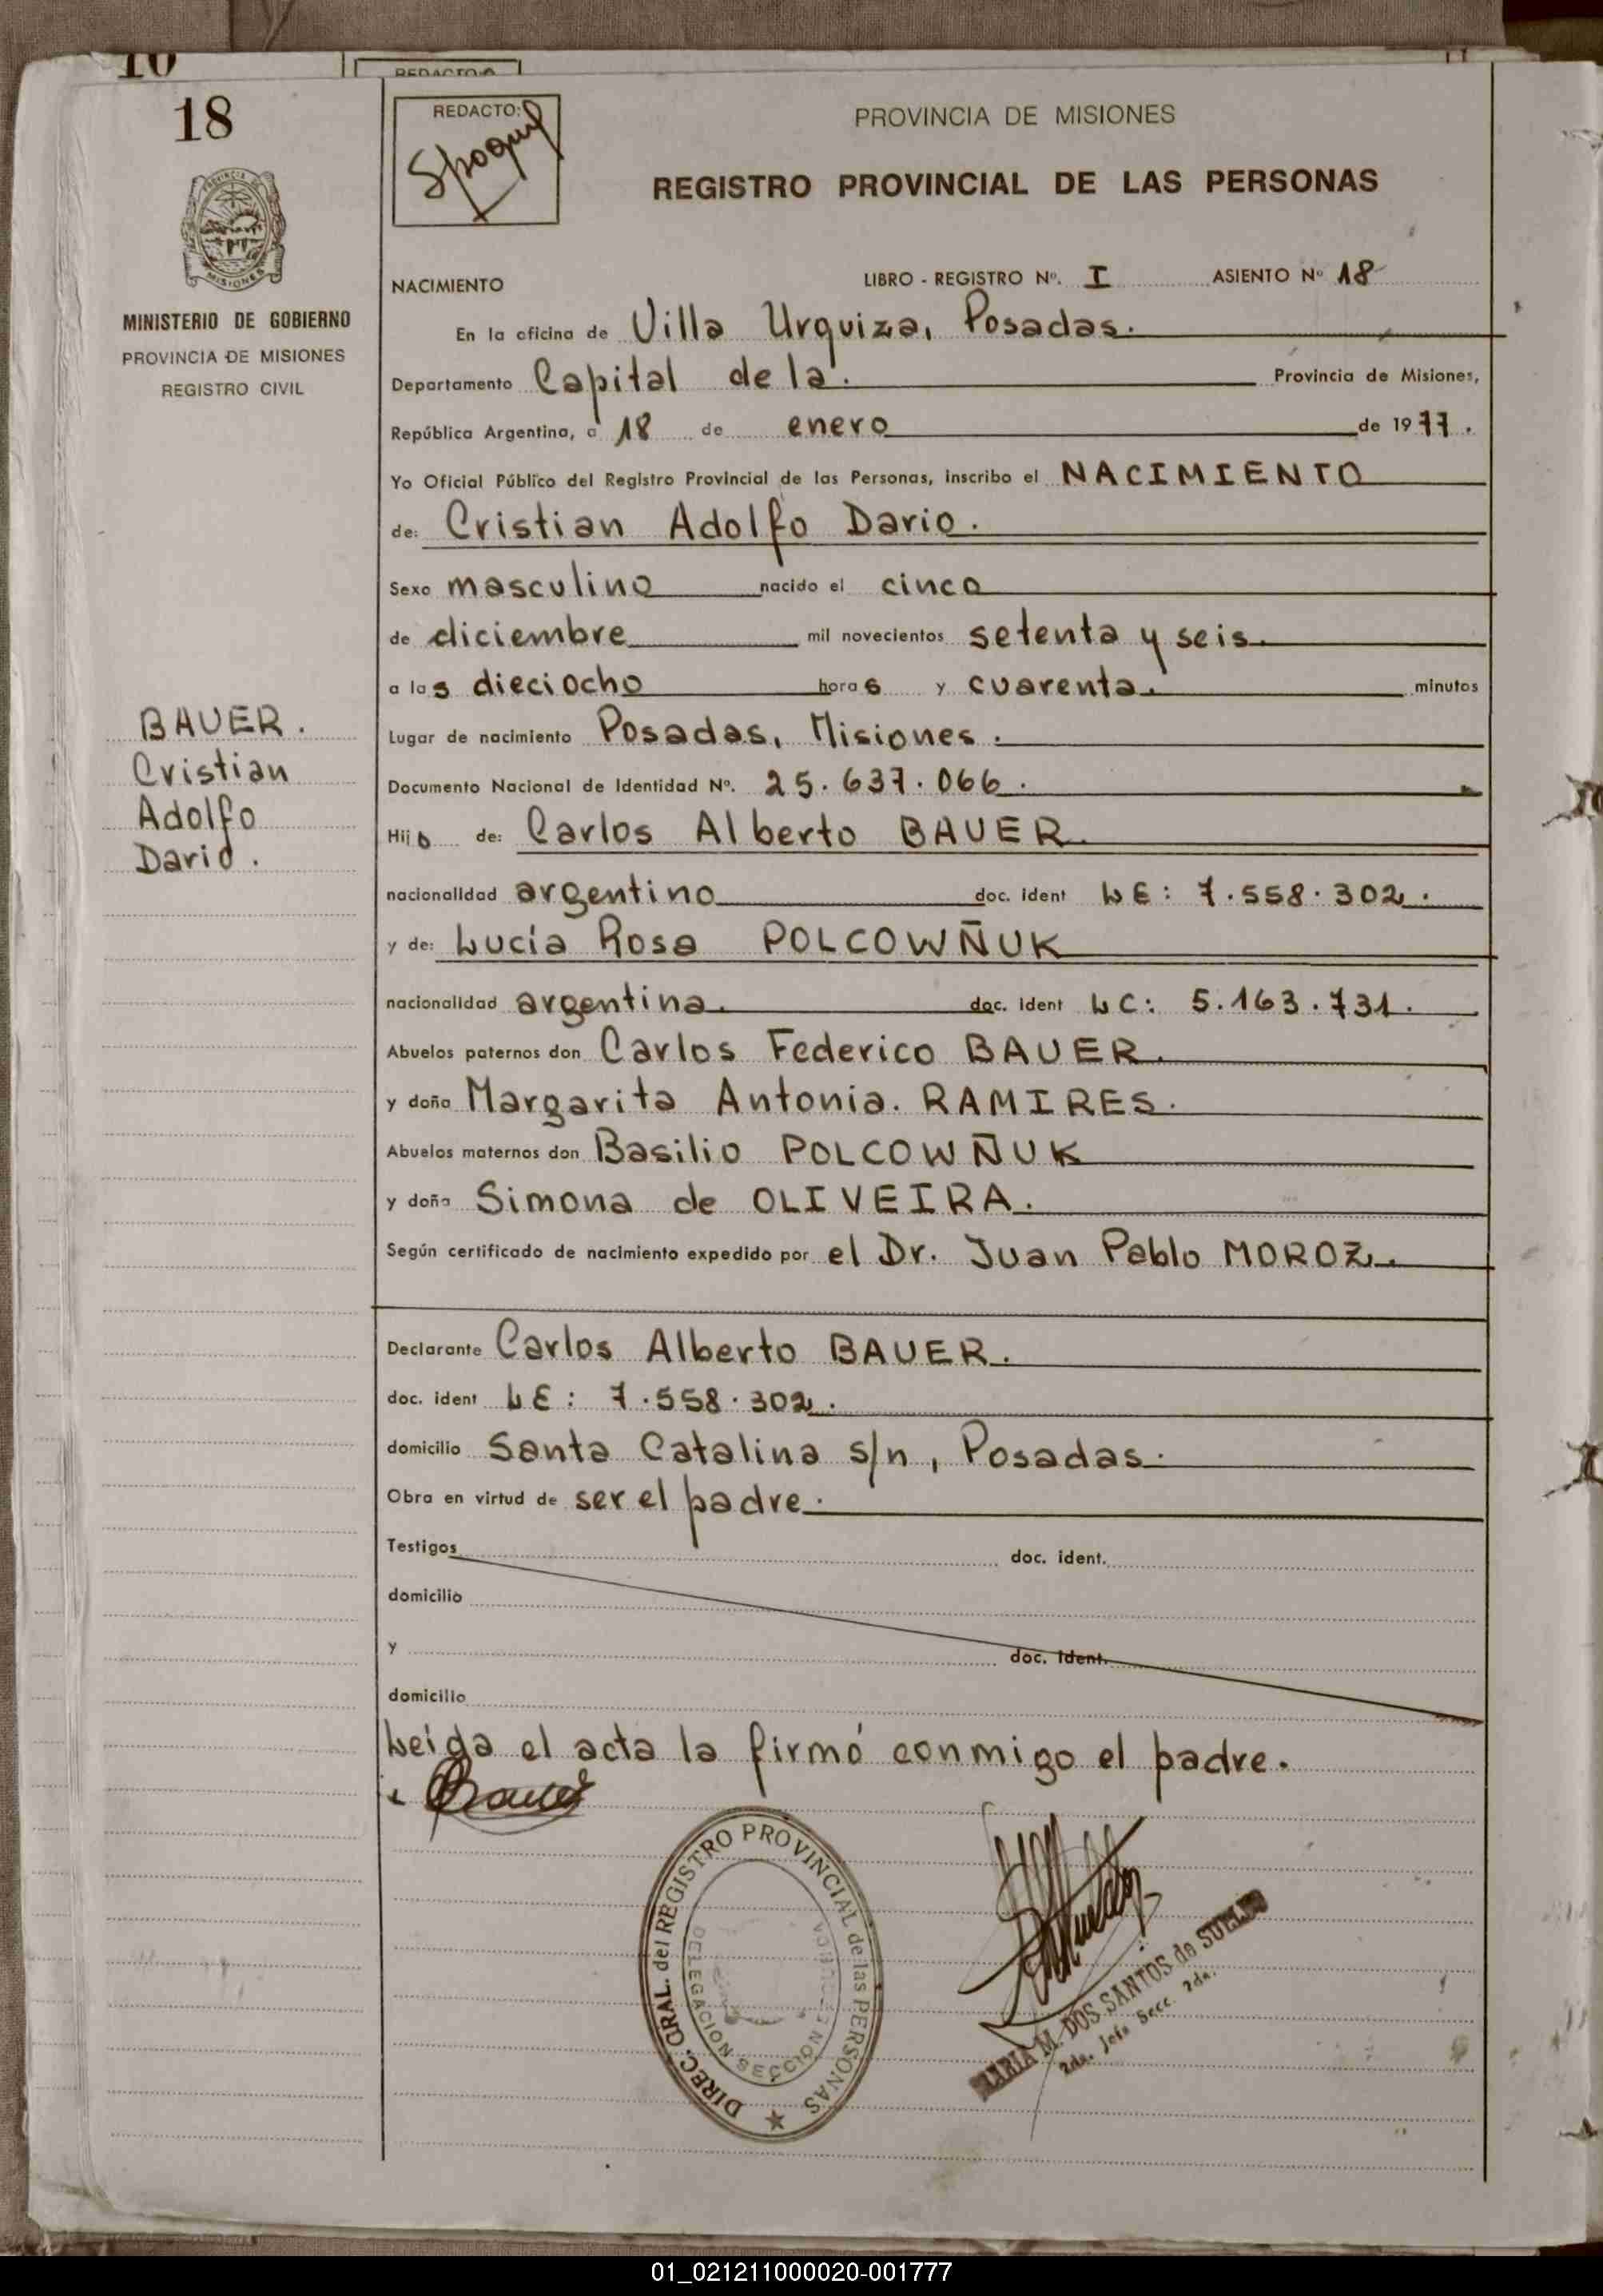 10
REDACTO:
18
REDACTO:
PROVINCIA DE MISIONES
REGISTRO PROVINCIAL DE LAS PERSONAS
PROVINCIA DE
MISIONES
MINISTERIO DE GOBIERNO
PROVINCIA DE MISIONES
REGISTRO CIVIL
NACIMIENTO LIBRO - REGISTRO Nº. I ASIENTO Nº 18
En la oficina de Villa Urquiza, Posadas.
Departamento Capital de la. Provincia de Misiones,
República Argentina, a 18 de enero de 1977.
Yo Oficial Público del Registro Provincial de las Personas, inscribo el NACIMIENTO
de: Cristian Adolfo Dario.
Sexo masculino nacido el cinco
de diciembre mil novecientos setenta y seis.
a las dieciocho horas y cuarenta. minutos
BAUER.
Cristian
Adolfo
Dario.
Lugar de nacimiento Posadas, Misiones.
Documento Nacional de Identidad Nº. 25.637.066.
Hijo de: Carlos Alberto BAUER.
nacionalidad argentino doc. ident LE: 7.558.302.
y de: Lucía Rosa POLCOWÑUK
nacionalidad argentina. doc. ident LC: 5.163.731.
Abuelos paternos don Carlos Federico BAUER.
y doña Margarita Antonia. RAMIRES.
Abuelos maternos don Basilio POLCOWÑUK
y doña Simona de OLIVEIRA.
Según certificado de nacimiento expedido por el Dr. Juan Pablo MOROZ.
Declarante Carlos Alberto BAUER.
doc. ident LE: 7.558.302.
domicilio Santa Catalina s/n, Posadas.
Obra en virtud de ser el padre.
Testigos doc. ident.
domicilio
y doc. ident.
domicilio
Leída el acta la firmó conmigo el padre.
DIREC. GRAL. del REGISTRO PROVINCIAL de las PERSONAS
DELEGACION SECCION
MARIA M. DOS SANTOS de
2da. Jefe Secc. 2da.
01_021211000020-001777